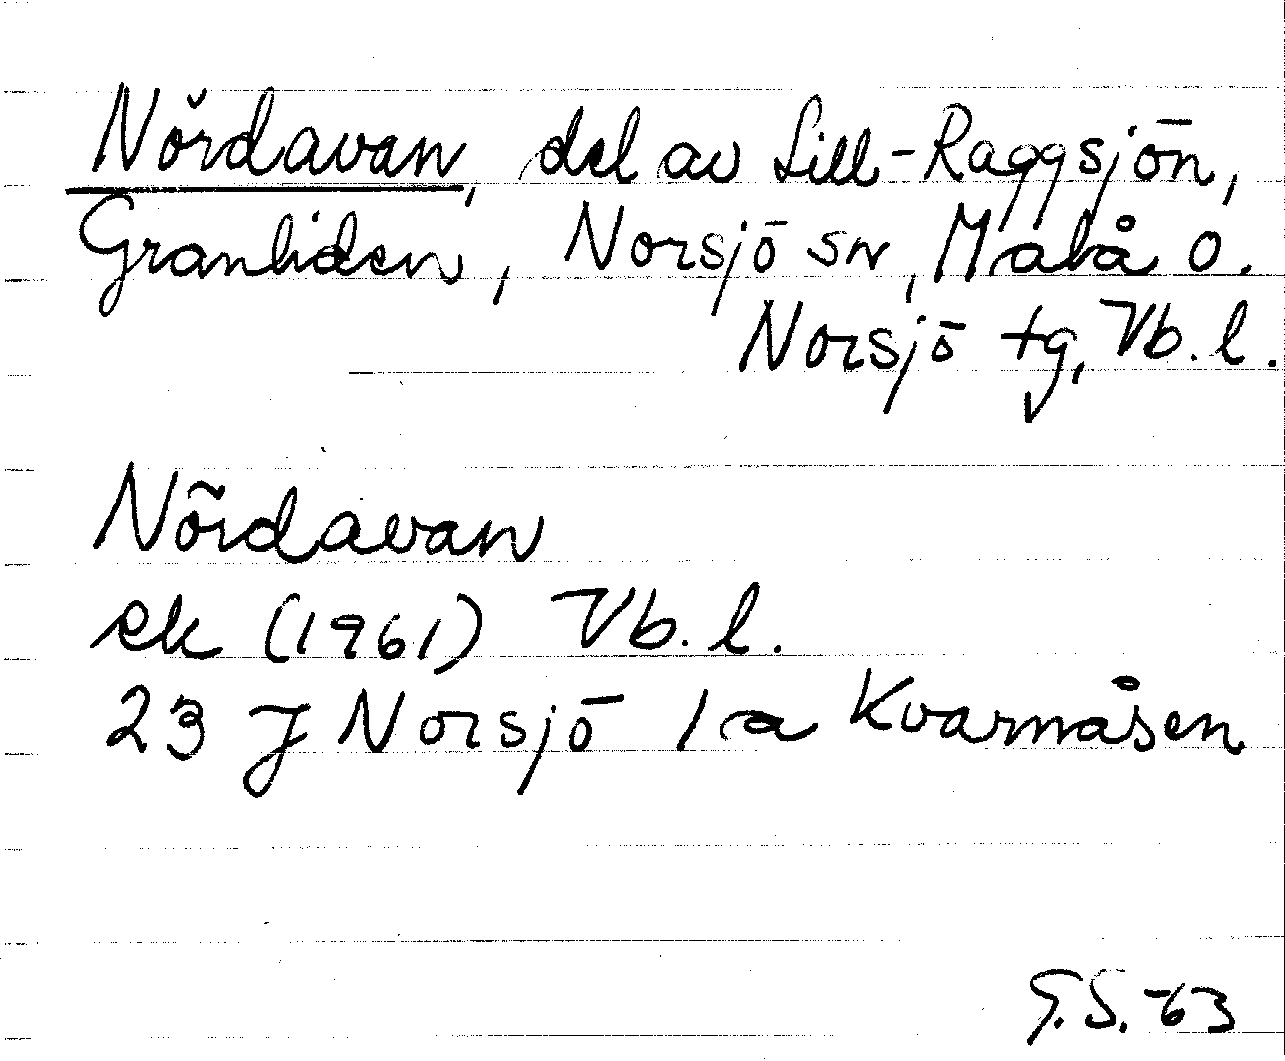 Nördavan, del av Lill-Raggsjön,
Granliden, Norsjö sn, Malå o.
Norsjö tg, Vb. l.
Nördavan
ek (1961) Vb. l.
23 J Norsjö 1 a Kvarnåsen
G.S. -63